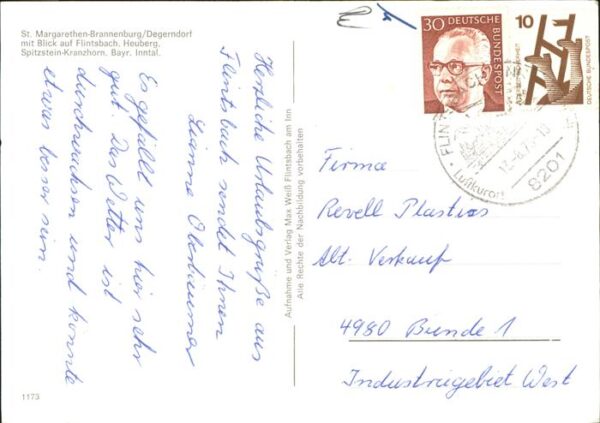 St. Margarethen-Brannenburg/Degerndorf
mit Blick auf Flintsbach, Heuberg,
Spitzstein-Kranzhorn. Bayr. Inntal.
Herzliche Urlaubsgrüße aus
Flintsbach sendet Ihnen
Lianne Oberbäumer
Es gefällt uns hier sehr
gut. Das Wetter ist
durchwachsen und könnte
etwas besser sein.
1173
Aufnahme und Verlag Max Weiß Flintsbach am Inn
Alle Rechte der Nachbildung vorbehalten
30 DEUTSCHE
BUNDESPOST
10
DEUTSCHE BUNDESPOST
FLINT
Luftkurort
8201
Firma
Revell Plastics
Abt. Verkauf
4980 Bünde 1
Industriegebiet West